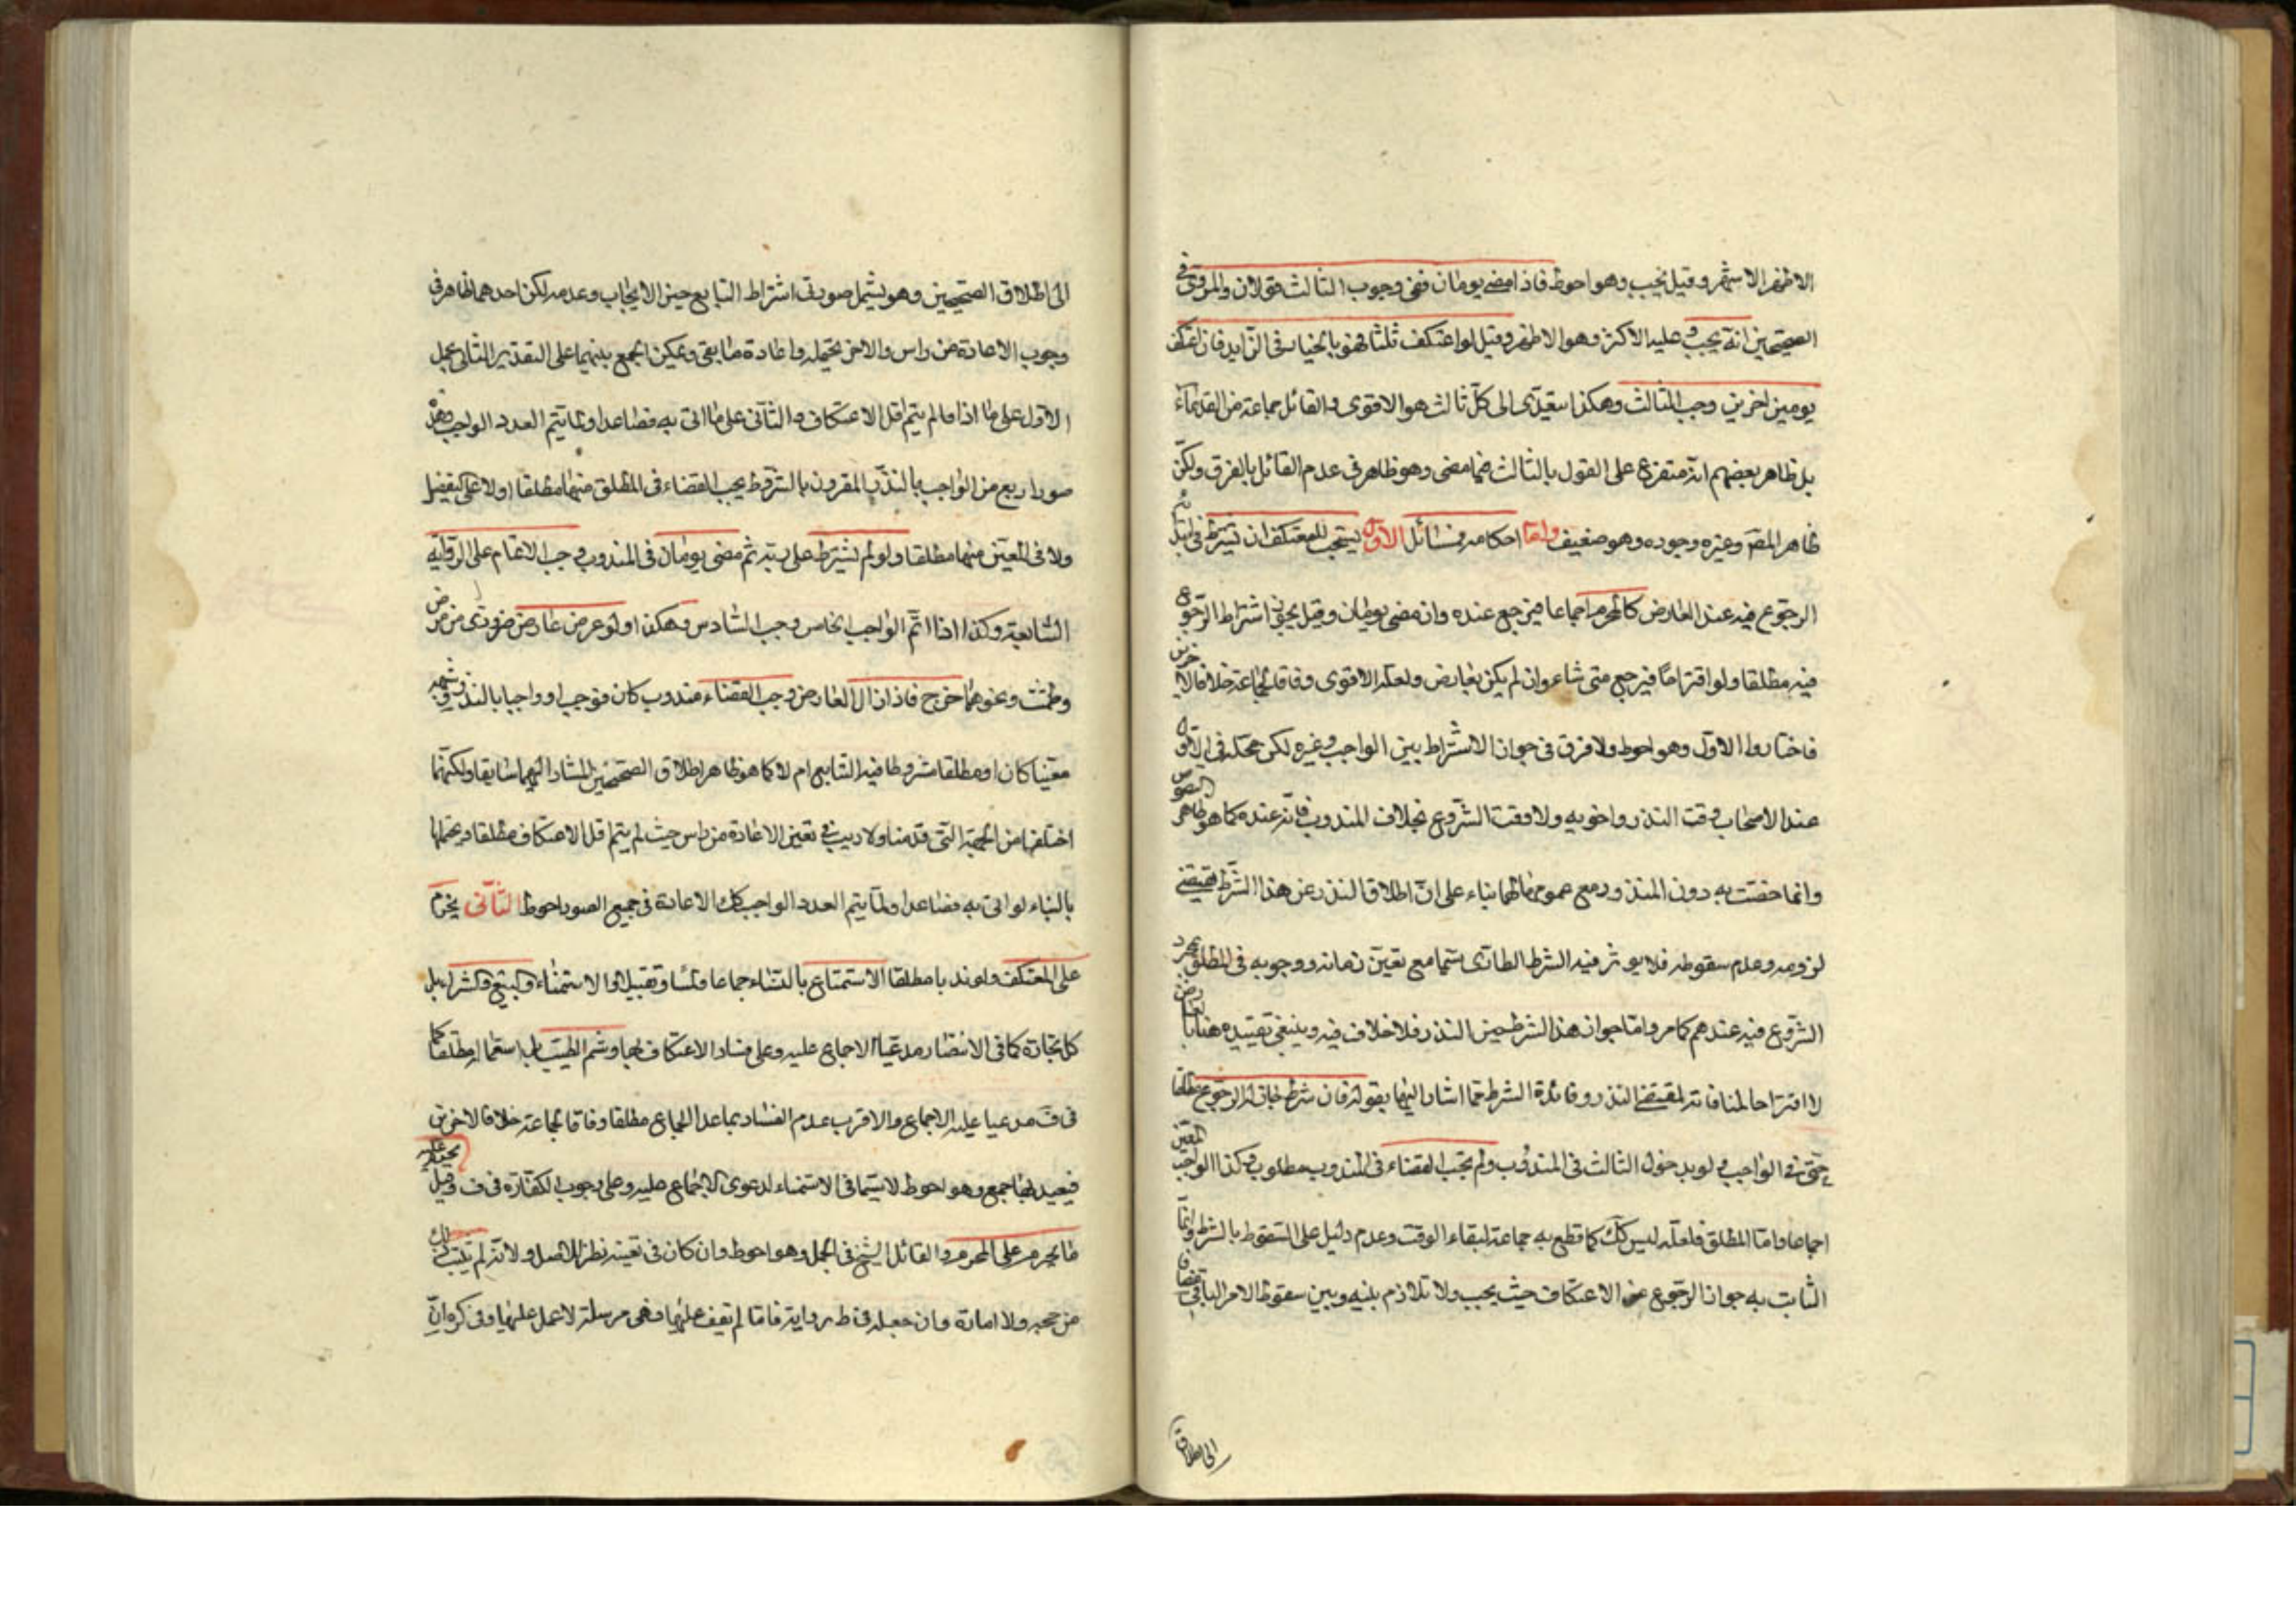 الاظهر الاشهر وقيل يجب وهو احوط فاذا مضى يومان ففى وجوب الثالث قولان والمروى فى
الصحيحين انه يجب وعليه الاكثر وهو الاظهر وقيل لو اعتكف ثلثا فهو بالخيار فى الزايد فان اعتكف
يومين اخرين وجب الثالث وهكذا سيعدى الى كل ثالث هو الاقوى والقائل جماعة من القدماء
بل ظاهر بعضهم انه متفرع على القول بالثالث فيما مضى وهو ظاهر فى عدم القائل بالفرق ولكن
ظاهر المصّ وغيره وجوده وهو ضعيف واما احكامه فمسائل الاول يستحب للمعتكف ان يشترط فى ابتدائه
الرجوع فيه عند العارض كالمحرم اجماعا فيرجع عنده وان مضى يومان وقيل يجوز اشتراط الرجوع
فيه مطلقا ولو اقتراحًا فيرجع متى شاء وان لم يكن بعارض ولعله الاقوى وفاقا لجماعة خلافا لاخرين
فاختاروا الاول وهو احوط ولا فرق فى جواز الاشتراط بين الواجب وغيره لكن محله فى الاول
عند الاصحاب وقت النذر واخويه ولا وقت الشروع بخلاف المندوب فانه عنده كما هو ظاهر النصوص
وانما خصت به دون المنذور مع عمومها لهما بناء على انّ اطلاق النذر عن هذا الشرط يقتضى
لزومه وعدم سقوطه فلا يوثر فيه الشرط الطارى سيما مع تعين زمانه ووجوبه فى المطلق بمجرد
الشروع فيه عندهم كما مر واما جواز هذا الشرط حين النذر فلا خلاف فيه وينبغى تقييده هنا بالعارض
لا اقتراحا لمنافاته لمقتضى النذر وفائدة الشرط مما اشار اليها بقوله فان شرط جاز له الرجوع مطلقا
حتى فى الواجب ولو بدخول الثالث فى المندوب ولم يجب القضاء فى المندوب مطلوب وكذا الواجب المعين
اجماعا واما المطلق فلعله ليس كك كما قطع به جماعة لبقاء الوقت وعدم دليل على السقوط بالشرط وانما
الثابت به جواز الرجوع عن الاعتكاف حيث يجب ولا تلازم بينه وبين سقوط الامر الباقى
الى اطلاق
الى اطلاق الصحيحين وهو يشمل صورتى اشتراط التتابع حين الايجاب وعدمه لكن احدهما ظاهر فى
وجوب الاعادة من راس والاخر يحتمله واعادة ما بقى ويمكن الجمع بينهما على التقدير الثانى بحمل
الاول على ما اذا ما لم يتم اقل الاعتكاف والثانى على ما اتى به فصاعدا ولما يتم العدد الواجب فهذه
صور اربع من الواجب بالنذر المقرون بالشرط يجب القضاء فى المطلق منها مطلقا او لا على تفصيل
ولا فى المعين منها مطلقا ولو لم يشترط على ربه ثم مضى يومان فى المندوب وجب الاتمام على الرواية
السابعة وكذا اذا اتم الواجب الخامس وجب السادس وهكذا ولو عرض عارض ضرورى من مرض
وطمث ونحوهما خرج فاذا زال العارض وجب القضاء مندوب كان فوجب او واجبا بالنذر وشبهه
معينا كان او مطلقا مشروطا فيه التتابع ام لا كما هو ظاهر اطلاق الصحيحين المشار اليهما سابقا ولكنهما
اختلفا من الجهة التى قدمنا ولا ريب فى تعين الاعادة من راس حيث لم يتم اقل الاعتكاف مطلقا ويحتمل
بالبناء لو اتى به فصاعدا ولما يتم العدد الواجب كك الاعادة فى جميع الصور احوط الثانى يحرم
على المعتكف ولو ندبا مطلقا الاستمتاع بالنساء جماعا ولمسا وتقبيلا والاستمناء والبيع والشراء بل
كل تجارة كما فى الانتصار مدعيا الاجماع عليه وعلى فساد الاعتكاف بها وشم الطيب بل استعماله مطلقا كما
فى فّ مدعيا عليه الاجماع والاقرب عدم الفساد بما عدا الجماع مطلقا وفاقا لجماعة خلافا لاخرين
فيفسد بها جمع وهو احوط لا سيما فى الاستمناء لدعوى الاجماع عليه وعلى وجوب الكفارة فى ف وقيل يحرم عليه
ما يحرم على المحرم والقائل الشيخ فى الجمل وهو احوط وان كان فى تعينه نظر للاصل ولانه لم يثبت ذلك
من حجة ولا امارة وان جعله فى ط رواية فانا لم نقف عليها فهى مرسلة لا عمل عليها وفى كره انّ